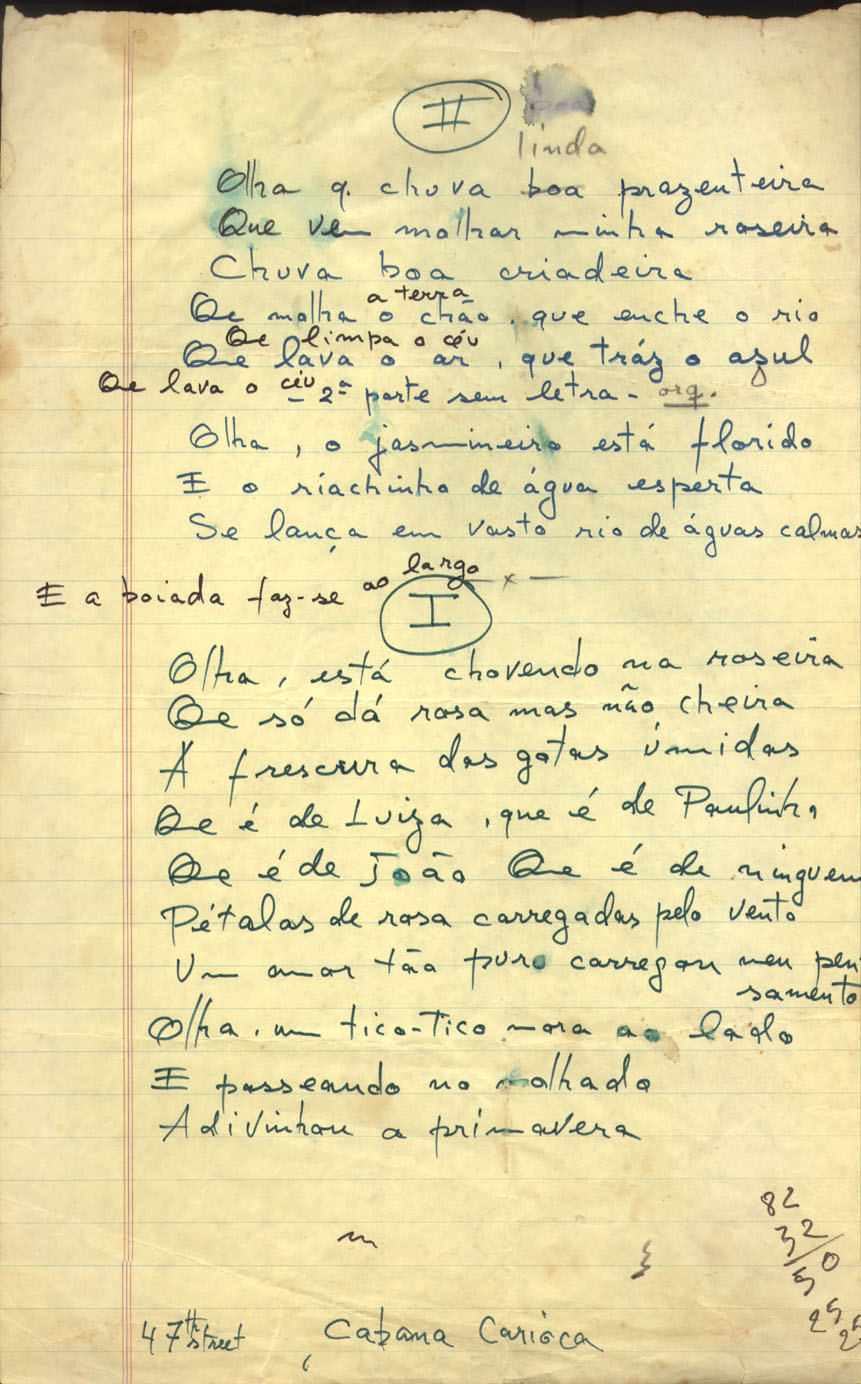 II boa
linda
Olha q. chuva boa prazenteira
Que vem molhar minha roseira
Chuva boa criadeira
a terra
Qe molha o chão, que enche o rio
Qe limpa o céu
Qe lava o ar, que tráz o azul
Qe lava o céu 2ª parte sem letra - orq.
Olha, o jasmineiro está florido
E o riachinho de água esperta
Se lança em vasto rio de águas calmas
E a boiada faz-se ao largo x
I
Olha, está chovendo na roseira
Qe só dá rosa mas não cheira
A frescura das gotas úmidas
Qe é de Luiza, que é de Paulinho
Qe é de João Qe é de ninguem
Pétalas de rosa carregadas pelo vento
Um amor tão puro carregou meu pen-
samento
Olha, um tico-tico mora ao lado
E passeando no molhado
Adivinhou a primavera
82
32
50
25
25
47th street Cabana Carioca